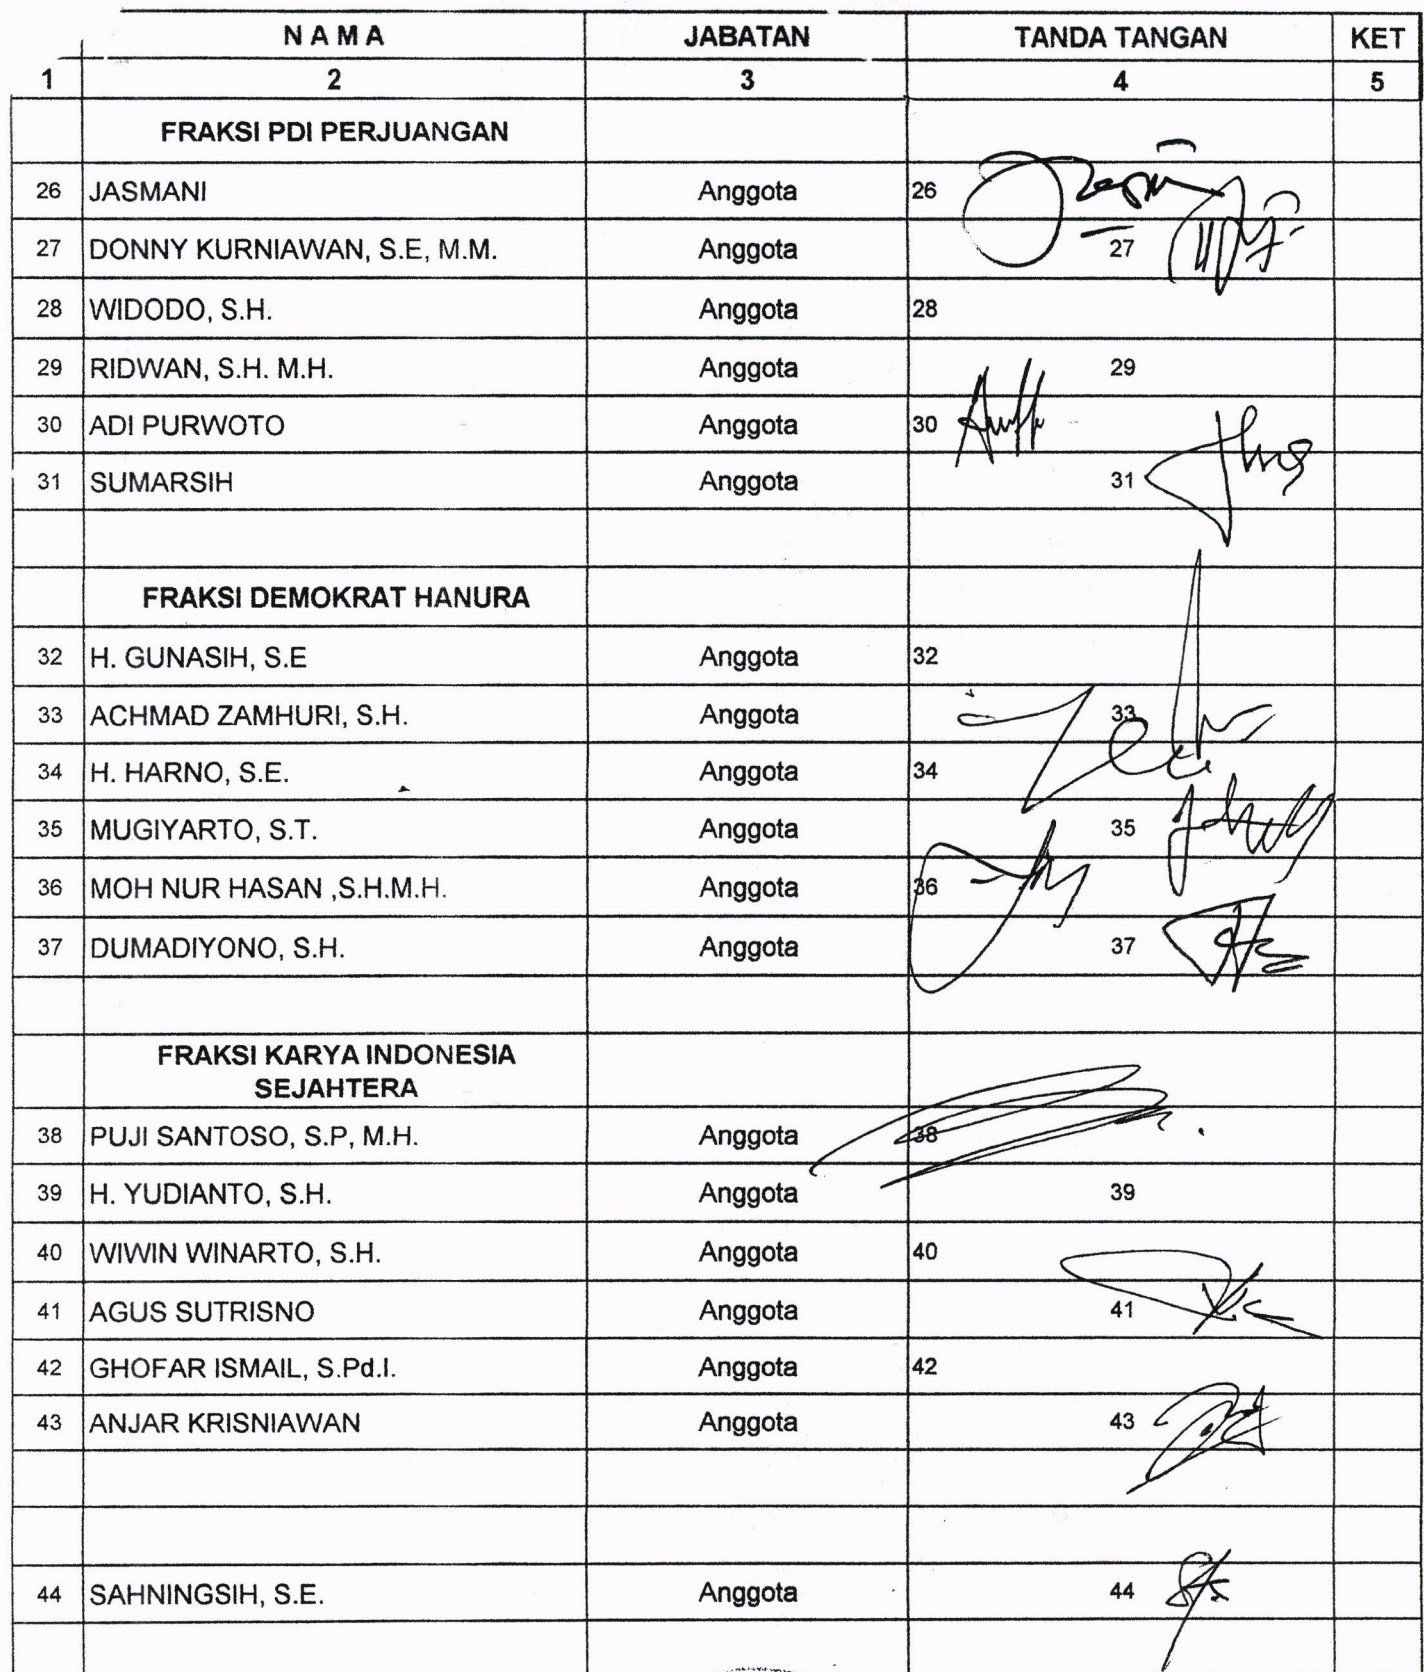 N A M A JABATAN TANDA TANGAN KET
1 2 3 4 5
FRAKSI PDI PERJUANGAN
26 JASMANI Anggota 26
27 DONNY KURNIAWAN, S.E, M.M. Anggota 27
28 WIDODO, S.H. Anggota 28
29 RIDWAN, S.H. M.H. Anggota 29
30 ADI PURWOTO Anggota 30
31 SUMARSIH Anggota 31
FRAKSI DEMOKRAT HANURA
32 H. GUNASIH, S.E Anggota 32
33 ACHMAD ZAMHURI, S.H. Anggota 33
34 H. HARNO, S.E. Anggota 34
35 MUGIYARTO, S.T. Anggota 35
36 MOH NUR HASAN ,S.H.M.H. Anggota 36
37 DUMADIYONO, S.H. Anggota 37
FRAKSI KARYA INDONESIA
SEJAHTERA
38 PUJI SANTOSO, S.P, M.H. Anggota 38
39 H. YUDIANTO, S.H. Anggota 39
40 WIWIN WINARTO, S.H. Anggota 40
41 AGUS SUTRISNO Anggota 41
42 GHOFAR ISMAIL, S.Pd.I. Anggota 42
43 ANJAR KRISNIAWAN Anggota 43
44 SAHNINGSIH, S.E. Anggota 44